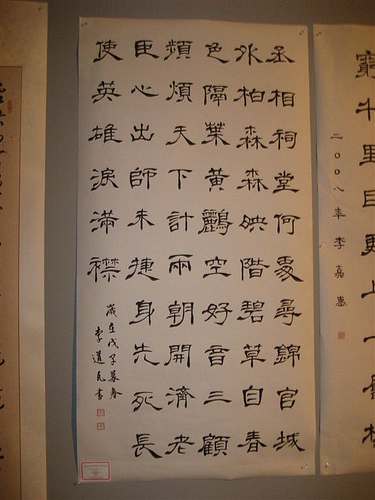 窮千里目更上一層樓
二〇〇八年李嘉惠
丞相祠堂何處尋錦官城
外柏森森映階碧草自春
色隔葉黃鸝空好音三顧
頻煩天下計兩朝開濟老
臣心出師未捷身先死長
使英雄淚滿襟
歲在戊子暮春
李道民書